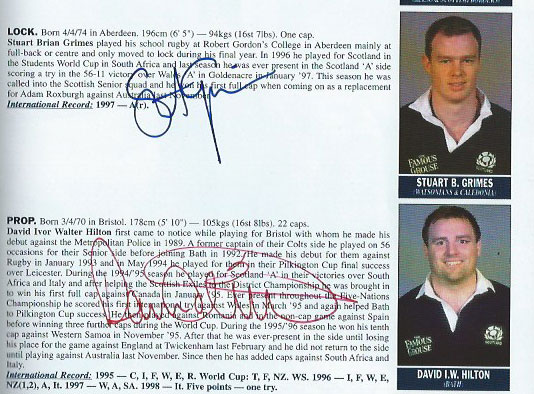 LOCK. Born 4/4/74 in Aberdeen. 196cm (6' 5") — 94kgs (16st 7lbs). One cap.
Stuart Brian Grimes played his school rugby at Robert Gordon's College in Aberdeen mainly at
full-back or centre and only moved to lock during his final year. In 1996 he played for Scotland in
the Students World Cup in South Africa and last season he was ever present in the Scotland 'A' side
scoring a try in the 56-11 victory over Wales 'A' in Goldenacre in January '97. This season he was
called into the Scottish Senior squad and he won his first full cap when coming on as a replacement
for Adam Roxburgh against Australia last November.
International Record: 1997 — A(r).
THE FAMOUS GROUSE
STUART B. GRIMES
(WATSONIANS & CALEDONIA)
PROP. Born 3/4/70 in Bristol. 178cm (5' 10") — 105kgs (16st 8lbs). 22 caps.
David Ivor Walter Hilton first came to notice while playing for Bristol with whom he made his
debut against the Metropolitan Police in 1989. A former captain of their Colts side he played on 56
occasions for their Senior side before joining Bath in 1992. He made his debut for them against
Rugby in January 1993 and in May 1994 he played for them in their Pilkington Cup final success
over Leicester. During the 1994/95 season he played for Scotland 'A' in their victories over South
Africa and Italy and after helping the Scottish Exiles to District Championship he was brought in
to win his first full cap against Canada in January '95. Ever present throughout the Five-Nations
Championship he scored his first try against Wales in March '95 and again helped Bath
to Pilkington Cup success. He against Romania in the non-cap game against Spain
before winning three further caps during the World Cup. During the 1995/96 season he won his tenth
cap against Western Samoa in November '95. After that he was ever-present in the side until losing
his place for the game against England at Twickenham last February and he did not return to the side
until playing against Australia last November. Since then he has added caps against South Africa and
Italy.
International Record: 1995 — C, I, F, W, E, R. World Cup: T, F, NZ. WS. 1996 — I, F, W, E,
NZ(1,2), A, It. 1997 — W, A, SA. 1998 — It. Five points — one try.
THE FAMOUS GROUSE
DAVID I.W. HILTON
(BATH)